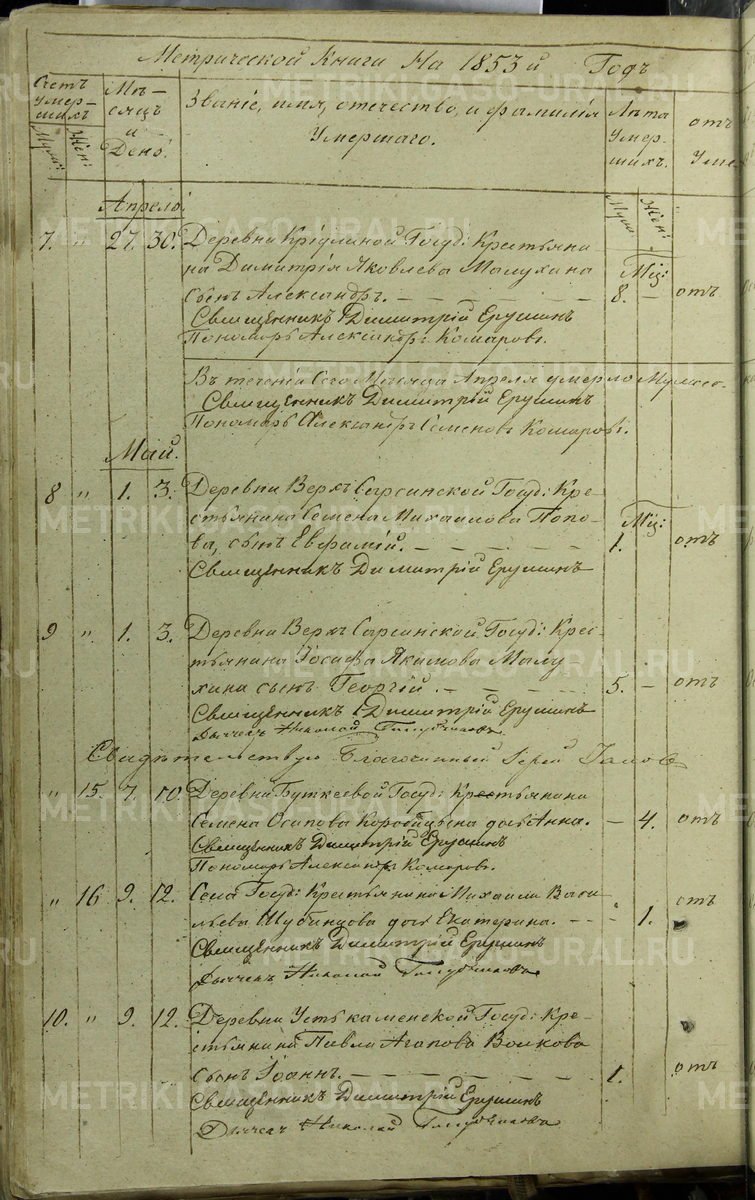 Метрической Книги На 1853й Годъ
Счетъ Умер-шихъ
Муж: Жен:
Мѣ-сяцъ и День.
Званіе, имя, отечество, и фамилія
Умершаго.
Лѣта Умер-шихъ.
Муж: Жен:
отъ
Уме
Апрель.
7. " 27. 30. Деревни Крюлиной Госуд: Крестьяни-
на Димитрія Яковлева Малухина
Сынъ Александръ. Мц: 8. – отъ
Священникъ Димитрій Ерушинъ
Пономарь Александръ Комаровъ.
Въ теченіи Сего Мѣсяца Апреля умерло Мужес-
Священникъ Димитрій Ерушинъ
Пономарь Александръ Семеновъ Комаровъ.
Май.
8 " 1. 3. Деревни Верхъ Сарсинской Госуд: Кре-
стьянина Семена Михайлова Попо-
ва, сынъ Евфимій. Мц: 1. отъ
Священникъ Димитрій Ерушинъ
9 " 1. 3. Деревни Верхъ Сарсинской Госуд: Крес-
тьянина Іосифа Якимова Малу
хина сынъ Георгій. 5. – отъ
Священникъ Димитрій Ерушинъ
Дьячекъ Николай
Свидѣтельствую Благочинный Іерей
" 15. 7. 10. Деревни Буткеевой Госуд: Крестьянина
Семена Осипова Коробицына дочь Анна. – 4. отъ
Священникъ Димитрій Ерушинъ
Пономарь Александръ Комаровъ.
" 16 9. 12. Села Госуд: Крестьянина Михаила Васи-
льева Шубинцова дочь Екатерина. " 1. отъ
Священникъ Димитрій Ерушинъ
Дьячекъ Николай
10. " 9. 12. Деревни Усть каменской Госуд: Кре-
стьянина Павла Агапова Волкова
Сынъ Іоаннъ. 1. отъ
Священникъ Димитрій Ерушинъ
Дьячекъ Николай
METRIKI.GASO-URAL.RU